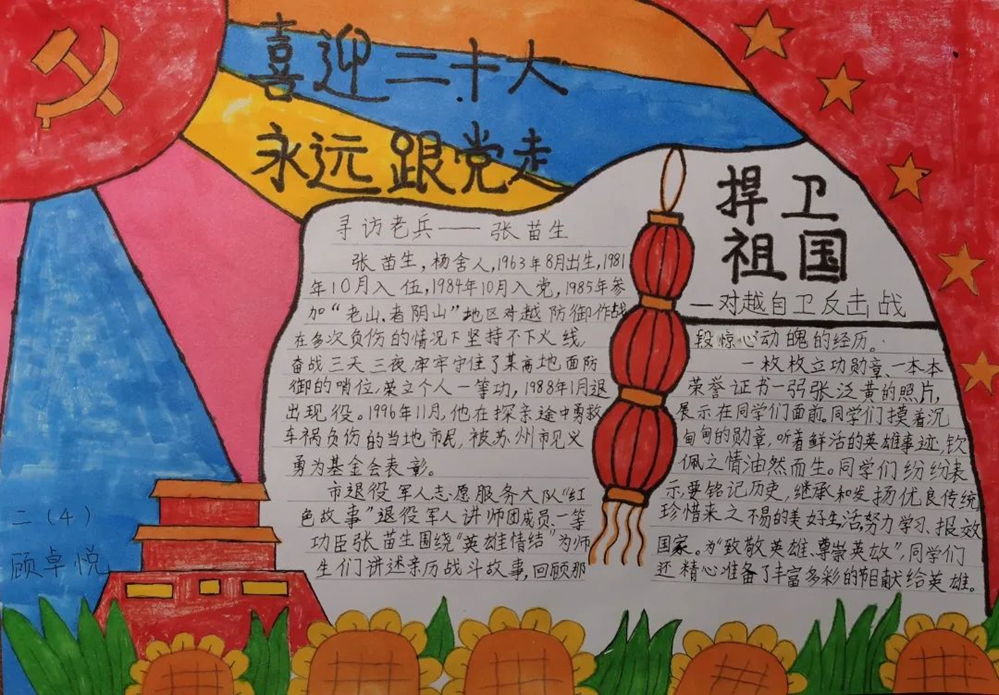 喜迎二十大
永远跟党走
捍卫
祖国
—对越自卫反击战
寻访老兵——张苗生
张苗生,杨舍人,1963年8月出生,1981
年10月入伍,1984年10月入党,1985年参
加“老山、者阴山”地区对越防御作战
在多次负伤的情况下坚持不下火线,
奋战三天三夜,牢牢守住了某高地面防
御的哨位,荣立个人一等功,1988年1月退
出现役。1996年11月,他在探亲途中勇救
车祸负伤的当地市民,被苏州市见义
勇为基金会表彰。
市退役军人志愿服务大队“红
色故事”退役军人讲师团成员、一等
功臣张苗生围绕“英雄情结”为师
生们讲述亲历战斗故事,回顾那
段惊心动魄的经历。
一枚枚立功勋章、一本本
荣誉证书一张张泛黄的照片,
展示在同学们面前。同学们摸着沉
甸甸的勋章,听着鲜活的英雄事迹,钦
佩之情油然而生。同学们纷纷表
示,要铭记历史,继承和发扬优良传统
珍惜来之不易的美好生活,努力学习、报效
国家。为“致敬英雄、尊崇英雄”,同学们
还精心准备了丰富多彩的节目献给英雄。
二(4)
顾卓悦